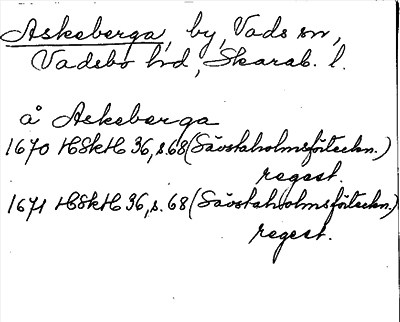 Askeberga, by, Vads sn,
Vadsbo hd, Skarab. l.
å Askeberga
1670 HSkH 36, s. 68 (Sävstaholmsförteckn.)
regest.
1671 HSkH 36, s. 68 (Sävstaholmsförteckn.)
regest.